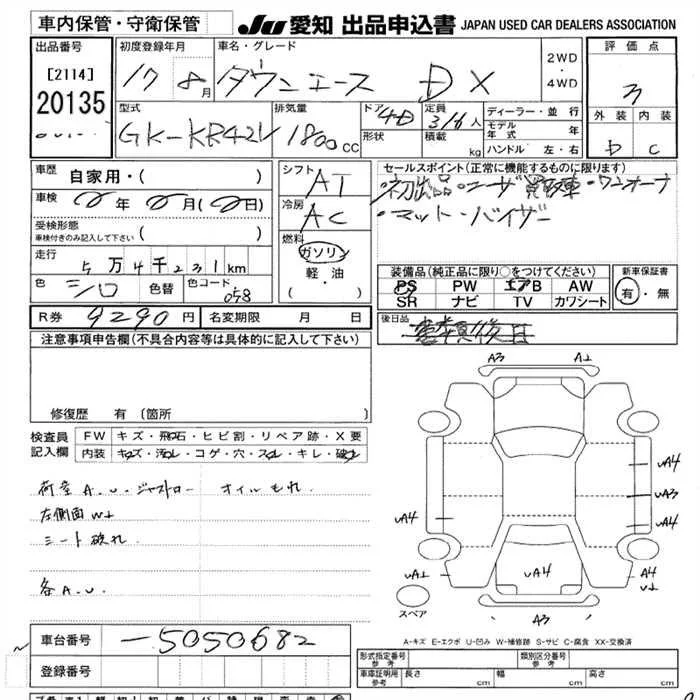 車内保管・守衛保管
JU 愛知 出品申込書 JAPAN USED CAR DEALERS ASSOCIATION
出品番号
[2114]
20135
初度登録年月
17 8月
車名・グレード
タウンエース DX
2WD
・
4WD
評価点
3
外装 内装
D C
型式
GK-KR42V
排気量
1800cc
ドア 4D
形状
定員 3/6人
積載 kg
ディーラー・並行
モデル年式 年
ハンドル 左・右
車歴 自家用・( )
車検 年 月( 日)
受検形態
車検付きのみ記入して下さい ( )
走行 5万4千231km
色 シロ 色替 色コード 058
シフト AT
冷房 AC
燃料
ガソリン
軽・油
( ・ )
セールスポイント(正常に機能するものに限ります)
・初出品・ユーザー買取車・ワンオーナー
・マット・バイザー
装備品(純正品に限り○をつけてください)
PS PW エアB AW
SR ナビ TV カワシート
新車保証書
有・無
R券 9290円 名変期限 月 日
後日品
注意事項申告欄(不具合内容等は具体的に記入して下さい)
修復歴 有(箇所
検査員記入欄
FW キズ・飛石・ヒビ割・リペア跡・X要
内装 キズ・汚れ・コゲ・穴・スレ・キレ・破れ
荷室 A.U. オイルもれ
左側面 W1
シート破れ
各A.U.
A3 A1
UA4
UA3
UA4 UA4
UA1 UA4 A4
U1
A3
スペア
A-キズ E-エクボ U-凹み W-補修跡 S-サビ C-腐食 XX-交換済
車台番号 -5050682
登録番号
形式指定番号
参考
類別区分番号
参考
車庫証明用
参考
長さ cm 幅 cm 高さ cm